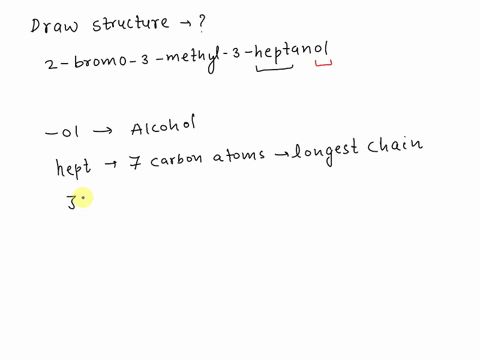 Draw structure → ?
2-bromo-3-methyl-3-heptanol
-ol → Alcohol
hept → 7 carbon atoms → longest chain
3